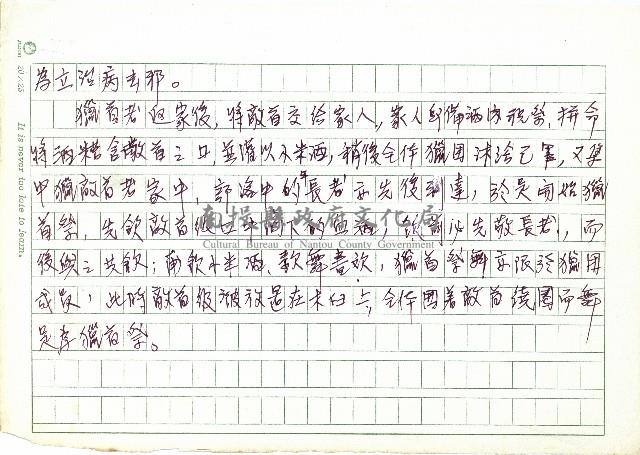 為立治病去邪。
獵首者返家後,將敵首交給家人,家人即備酒肉祝祭,拼命
將酒糟含敵首之口,並灌以小米酒,稍後全体獵團沐浴已畢,又集
中獵敵首者家中,部落中的年長者亦先後到達,於是開始獵
首祭,先飲敵首級口中滴下的血酒,飲前必先敬長者,而
後與之共飲;再飲小米酒、歌舞喜欢,獵首祭舞亦限於獵團
成員,此時敵首級被放置在木臼上,全体圍著敵首繞圈而舞
是為獵首祭。
南投縣政府文化局
Cultural Bureau of Nantou County Government
20 x 25
It is never too late to learn.